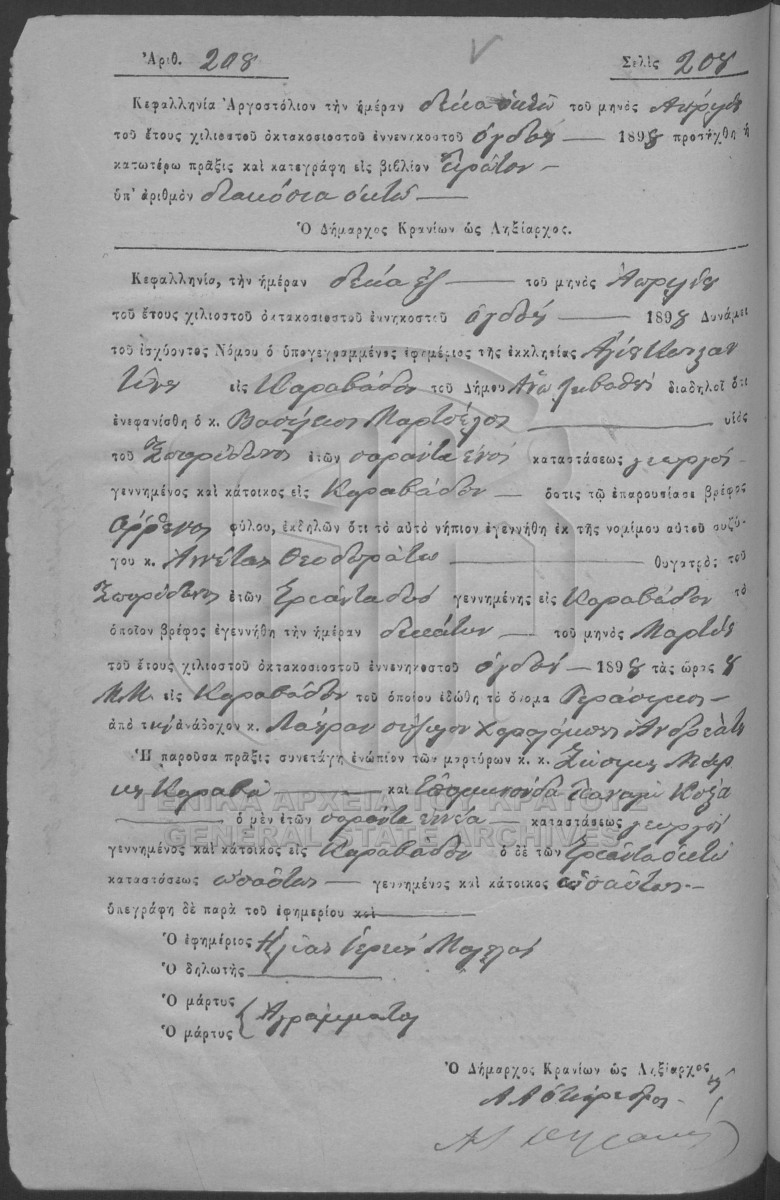 Ἀριθ. 208
Σελὶς 208
Κεφαλληνία Ἀργοστόλιον τὴν ἡμέραν δέκα ὀκτὼ τοῦ μηνὸς Ἀπριλίου
τοῦ ἔτους χιλιοστοῦ ὀκτακοσιοστοῦ ἐννενηκοστοῦ ὀγδόου — 1898 προσήχθη ἡ
κατωτέρω πρᾶξις καὶ κατεγράφη εἰς βιβλίον πρῶτον —
ὑπ' ἀριθμὸν διακόσια ὀκτὼ —
Ὁ Δήμαρχος Κρανίων ὡς Ληξίαρχος.
Κεφαλληνία, τὴν ἡμέραν δέκα ἓξ — τοῦ μηνὸς Ἀπριλίου
τοῦ ἔτους χιλιοστοῦ ὀκτακοσιοστοῦ ἐννηκοστοῦ ὀγδόου — 1898 Δυνάμει
τοῦ ἰσχύοντος Νόμου ὁ ὑπογεγραμμένος ἐφημέριος τῆς ἐκκλησίας Ἁγίου Κωνσταν
τίνου εἰς Καραβάδον τοῦ Δήμου Λειβαθοῦς διαδηλοῖ ὅτι
ἐνεφανίσθη ὁ κ. Βασίλειος Μαρτσέλος — υἱὸς
τοῦ Σπυρίδωνος ἐτῶν σαράντα ἑνός καταστάσεως γεωργός —
γεννημένος καὶ κάτοικος εἰς Καραβάδον — ὅστις τῷ ἐπαρουσίασε βρέφος
ἄρρενος φύλου, ἐκδηλῶν ὅτι τὸ αὐτὸ νήπιον ἐγεννήθη ἐκ τῆς νομίμου αὐτοῦ συζύ-
γου κ. Ἀννέτας Θεοδωράτου — θυγατρὸς τοῦ
Σπυρίδωνος ἐτῶν τριάντα δύο γεννημένης εἰς Καραβάδον τὸ
ὁποῖον βρέφος ἐγεννήθη τὴν ἡμέραν δεκάτην — τοῦ μηνὸς Μαρτίου
τοῦ ἔτους χιλιοστοῦ ὀκτακοσιοστοῦ ἐννενηκοστοῦ ὀγδόου — 1898 τὰς ὥρας 8
Μ.Μ. εἰς Καραβάδον τοῦ ὁποίου ἐδώθη τὸ ὄνομα Γεράσιμος —
ἀπὸ τὴν ἀνάδοχον κ. Λαύραν σύζυγον Χαραλάμπους Ἀνδρεάτου
Ἡ παροῦσα πρᾶξις συνετάγη ἐνώπιον τῶν μαρτύρων κ. κ. Μάρ
κου Καραβᾶ — καὶ Ἐπαμεινόνδα Παναγῆ
— ὁ μὲν ἐτῶν σαράντα ἐννέα — καταστάσεως γεωργοί
γεννημένος καὶ κάτοικος εἰς Καραβάδον ὁ δὲ τῶν τριάντα ὀκτὼ
καταστάσεως ὡσαύτως — γεννημένος καὶ κάτοικος ὡσαύτως —
ὑπεγράφη δὲ παρὰ τοῦ ἐφημερίου καὶ —
Ὁ ἐφημέριος Ἠλίας Ἱερεὺς
Ὁ δηλωτὴς —
Ὁ μάρτυς
Ὁ μάρτυς Ἀγράμματοι
Ὁ Δήμαρχος Κρανίων ὡς Ληξίαρχος
ΓΕΝΙΚΑ ΑΡΧΕΙΑ ΤΟΥ ΚΡΑΤΟΥΣ
GENERAL STATE ARCHIVES